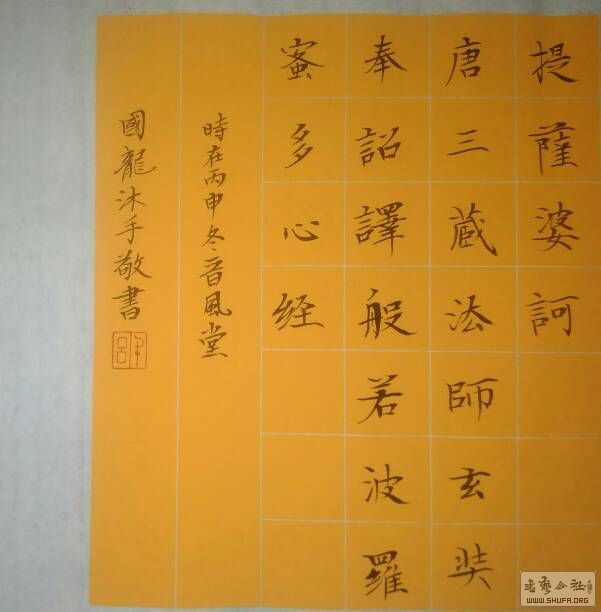 提薩婆訶
唐三蔵法師玄奘
奉詔譯般若波羅
蜜多心経
時在丙申冬音風堂
國龍沐手敬書
書藝公社
WWW.SHUFA.ORG